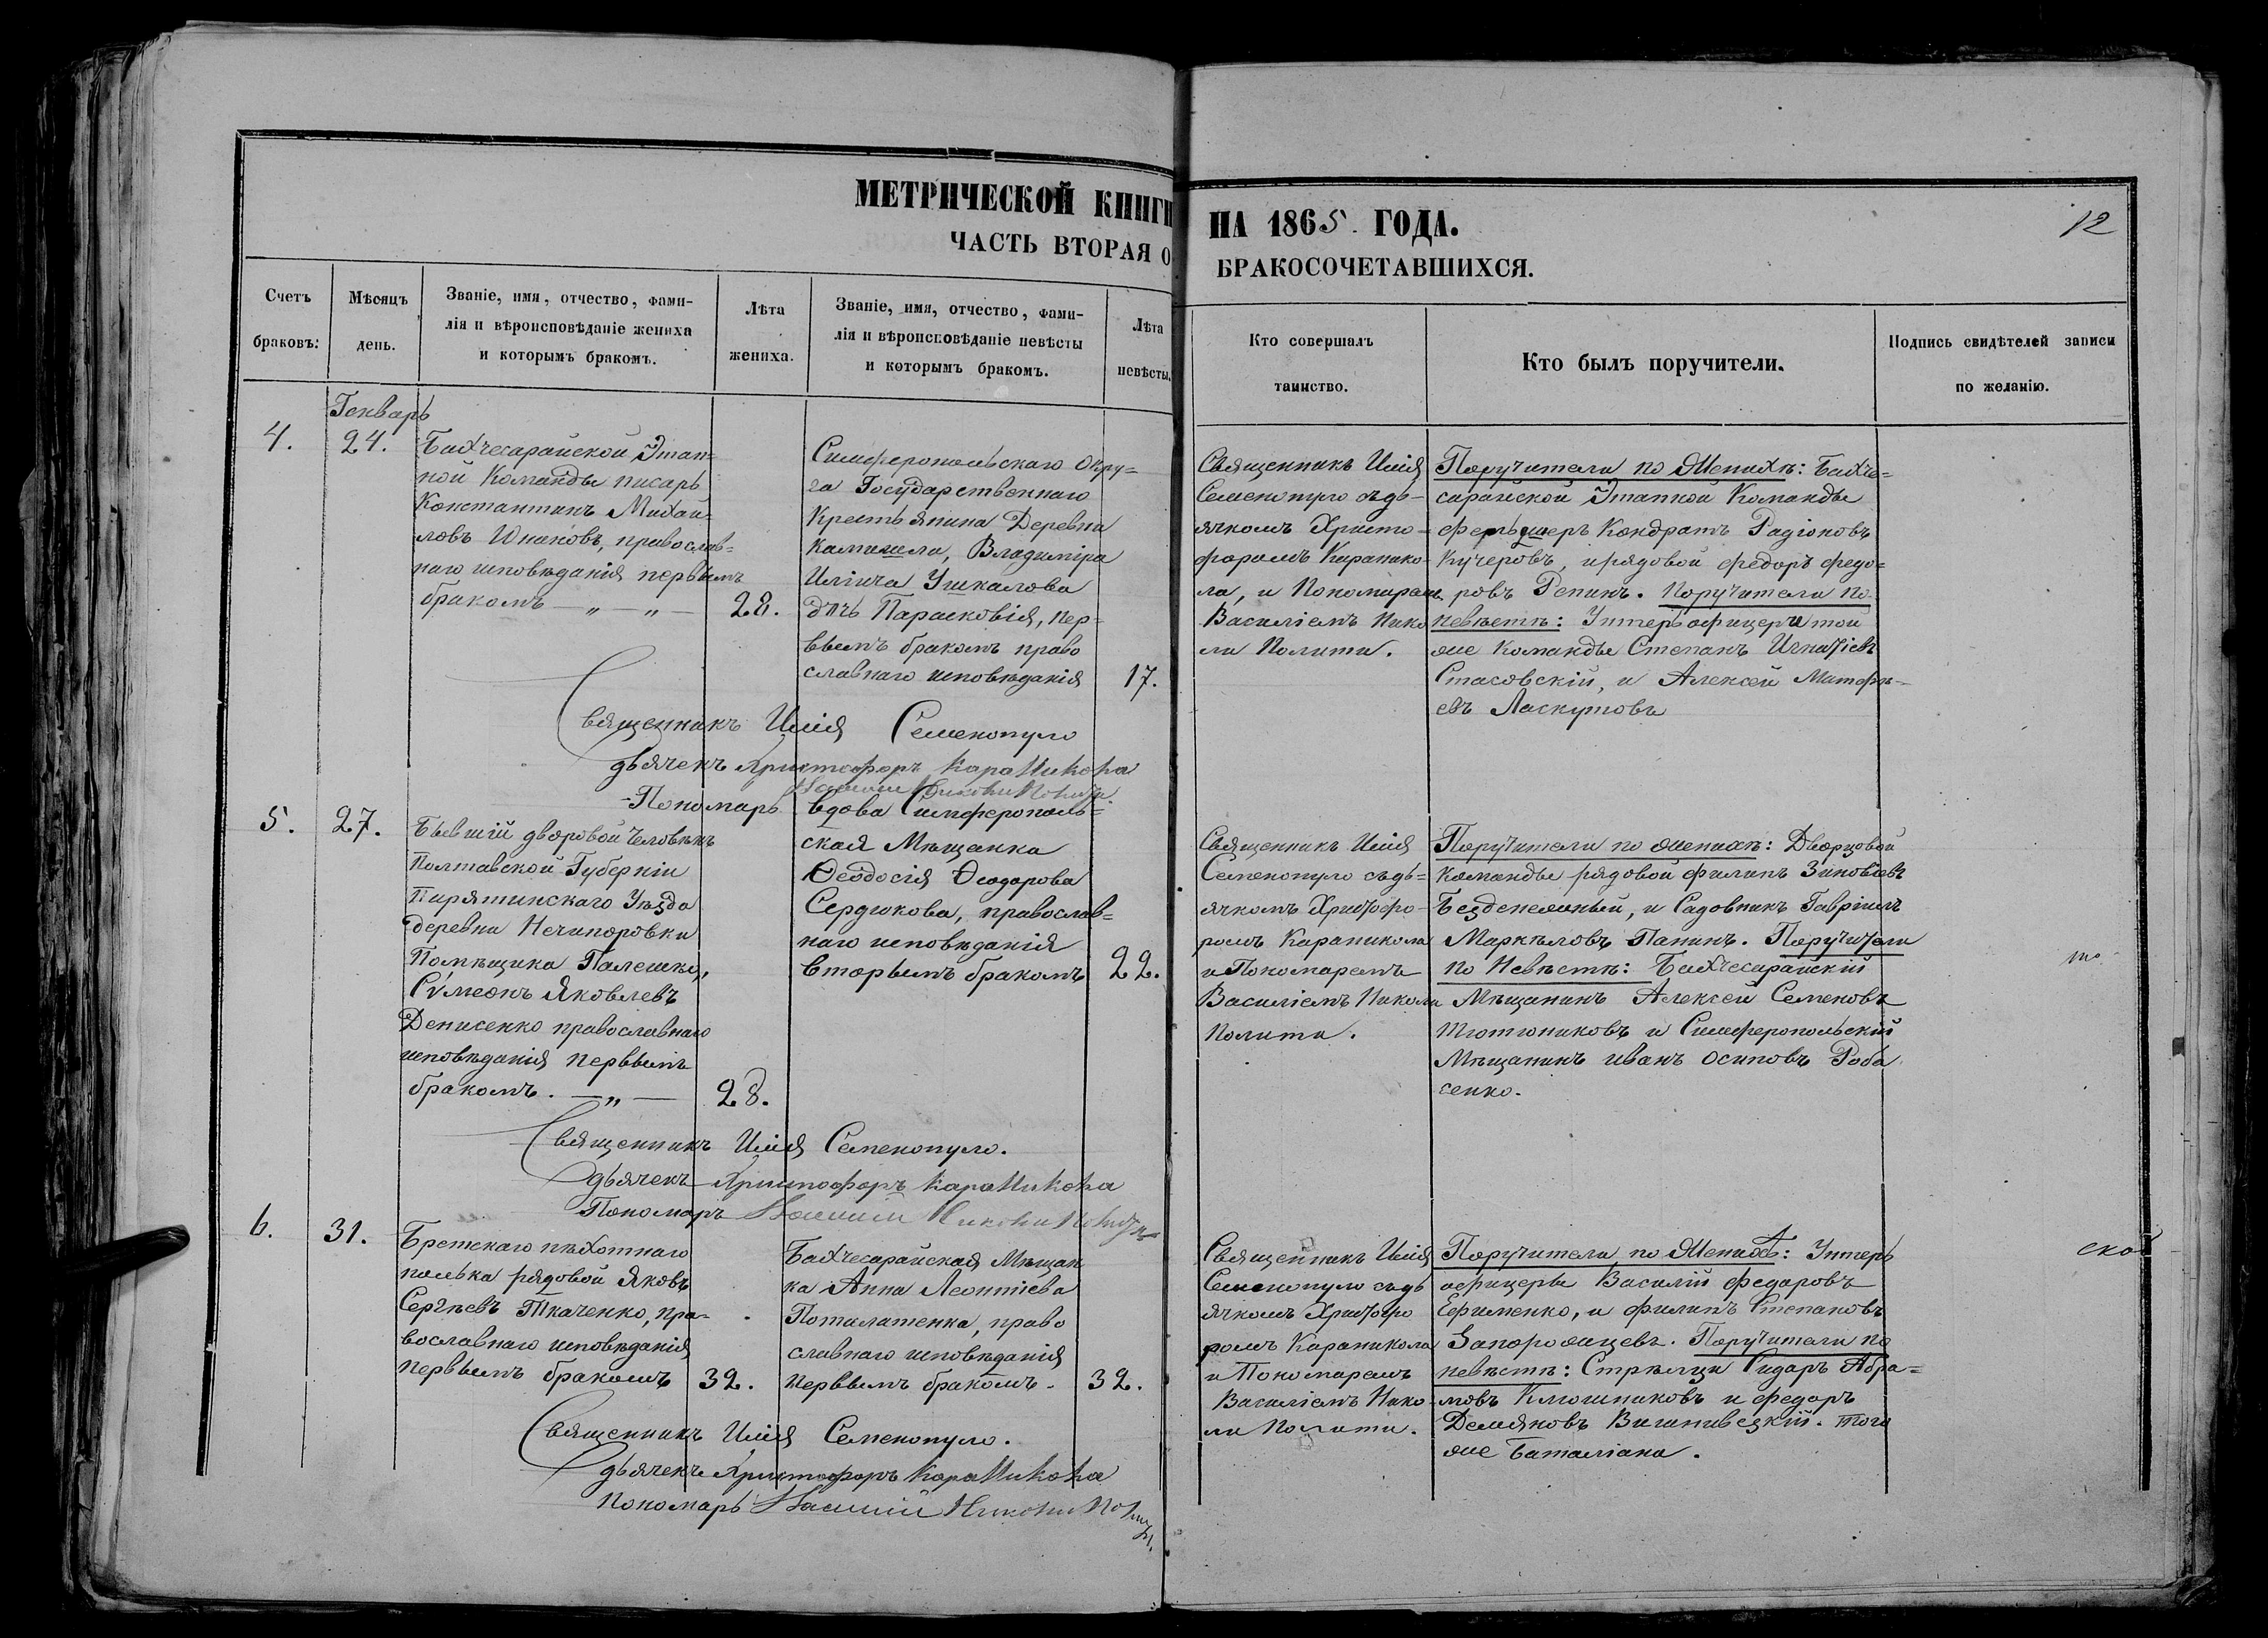 МЕТРИЧЕСКОЙ КНИГИ НА 1865 ГОДА.
12
ЧАСТЬ ВТОРАЯ О БРАКОСОЧЕТАВШИХСЯ.
Счетъ
браковъ:
Мѣсяцъ
день.
Званіе, имя, отчество, фами-
лія и вѣроисповѣданіе жениха
и которымъ бракомъ.
Лѣта
жениха.
Званіе, имя, отчество, фами-
лія и вѣроисповѣданіе невѣсты
и которымъ бракомъ.
Лѣта
невѣсты.
Кто совершалъ
таинство.
Кто былъ поручители.
Подпись свидѣтелей записи
по желанію.
Генварь
4.
24.
Бахчесарайской Этап=
ной Команды писарь
Константинъ Михаи=
ловъ Юнаковъ, православ=
наго исповѣданія первымъ
бракомъ — „ — „ —
28.
Симферопольскаго Окру=
га Государственнаго
Крестьянина Деревни
Владиміра
Иліича Ушкалова
дчь Парасковія, пер=
вымъ бракомъ право
славнаго исповѣданія
17.
Священникъ Илія
Семенопуло съдь-
ячкомъ Христо-
форомъ Каранико-
ла, и Пономарем
Василіемъ Нико
ли Полити.
Поручители по Женихѣ: Бахче=
сарайской Этапной Команды
фельдшеръ Кондратъ Радіоновъ
Кучеровъ, и рядовой Федоръ Федо=
ровъ Репинъ. Поручители по
невѣстѣ: Унтеръ офицеръ той
же Команды Степанъ Игнатіевъ
Стасовскій, и Алексей Матфѣ-
евъ Ласкутовъ
Священникъ Илія Семенопуло
дьячекъ Христофоръ Караникола
Пономарь
5.
27.
Бывшій дворовой человѣкъ
Полтавской Губерніи
Пирятинскаго Уѣзда
деревни Нечипоровки
Помѣщика Палешко,
Сѵмеонъ Яковлевъ
Денисенко православнаго
исповѣданія первымъ
бракомъ. — „ —
28.
вдова Симферополь=
ская Мѣщанка
Ѳеодосія Ѳеодорова
Сердюкова, православ=
наго исповѣданія
вторымъ бракомъ
22.
Священникъ Илія
Семенопуло съдь=
ячкомъ Христофо-
ромъ Караникола
и Пономаремъ
Василіемъ Николи
Полити.
Поручители по женихѣ: Дворцовой
команды рядовой Филипъ Зиновіевъ
Безденежный, и Садовникъ Гавріилъ
Маркѣловъ Панинъ. Поручители
по Невѣстѣ: Бахчесарайскій
Мѣщанинъ Алексей Семеновъ
Тютюниковъ и Симферопольскій
Мѣщанинъ Иванъ Осиповъ Роба
сенко.
Священникъ Илія Семенопуло.
дьячекъ Христофоръ Караникола
Пономарь Василій Николи Полити
6.
31.
Брестскаго пѣхотнаго
полька рядовой Яковъ
Сергѣевъ Ткаченко, пра-
вославнаго исповѣданія
первымъ бракомъ
32.
Бахчесарайская Мѣщан
ка Анна Леонтіева
право
славнаго исповѣданія
первымъ бракомъ.
32.
Священникъ Илія
Семенопуло съдь
ячкомъ Христофо
ромъ Караникола
и Пономаремъ
Василіемъ Нико-
ли Полити.
Поручители по Женихѣ: Унтеръ
офицеры Василій Федаровъ
Ефименко, и Филипъ Степановъ
Запорожцевъ. Поручители по
невѣстѣ: Стрѣлци Сидаръ Абра=
мовъ Клюшниковъ и Федаръ
Демяновъ Вишнивецкій. того
же Баталіана.
Священникъ Илія Семенопуло.
дьячекъ Христофоръ Караникола
Пономарь Василій Николи Полити.